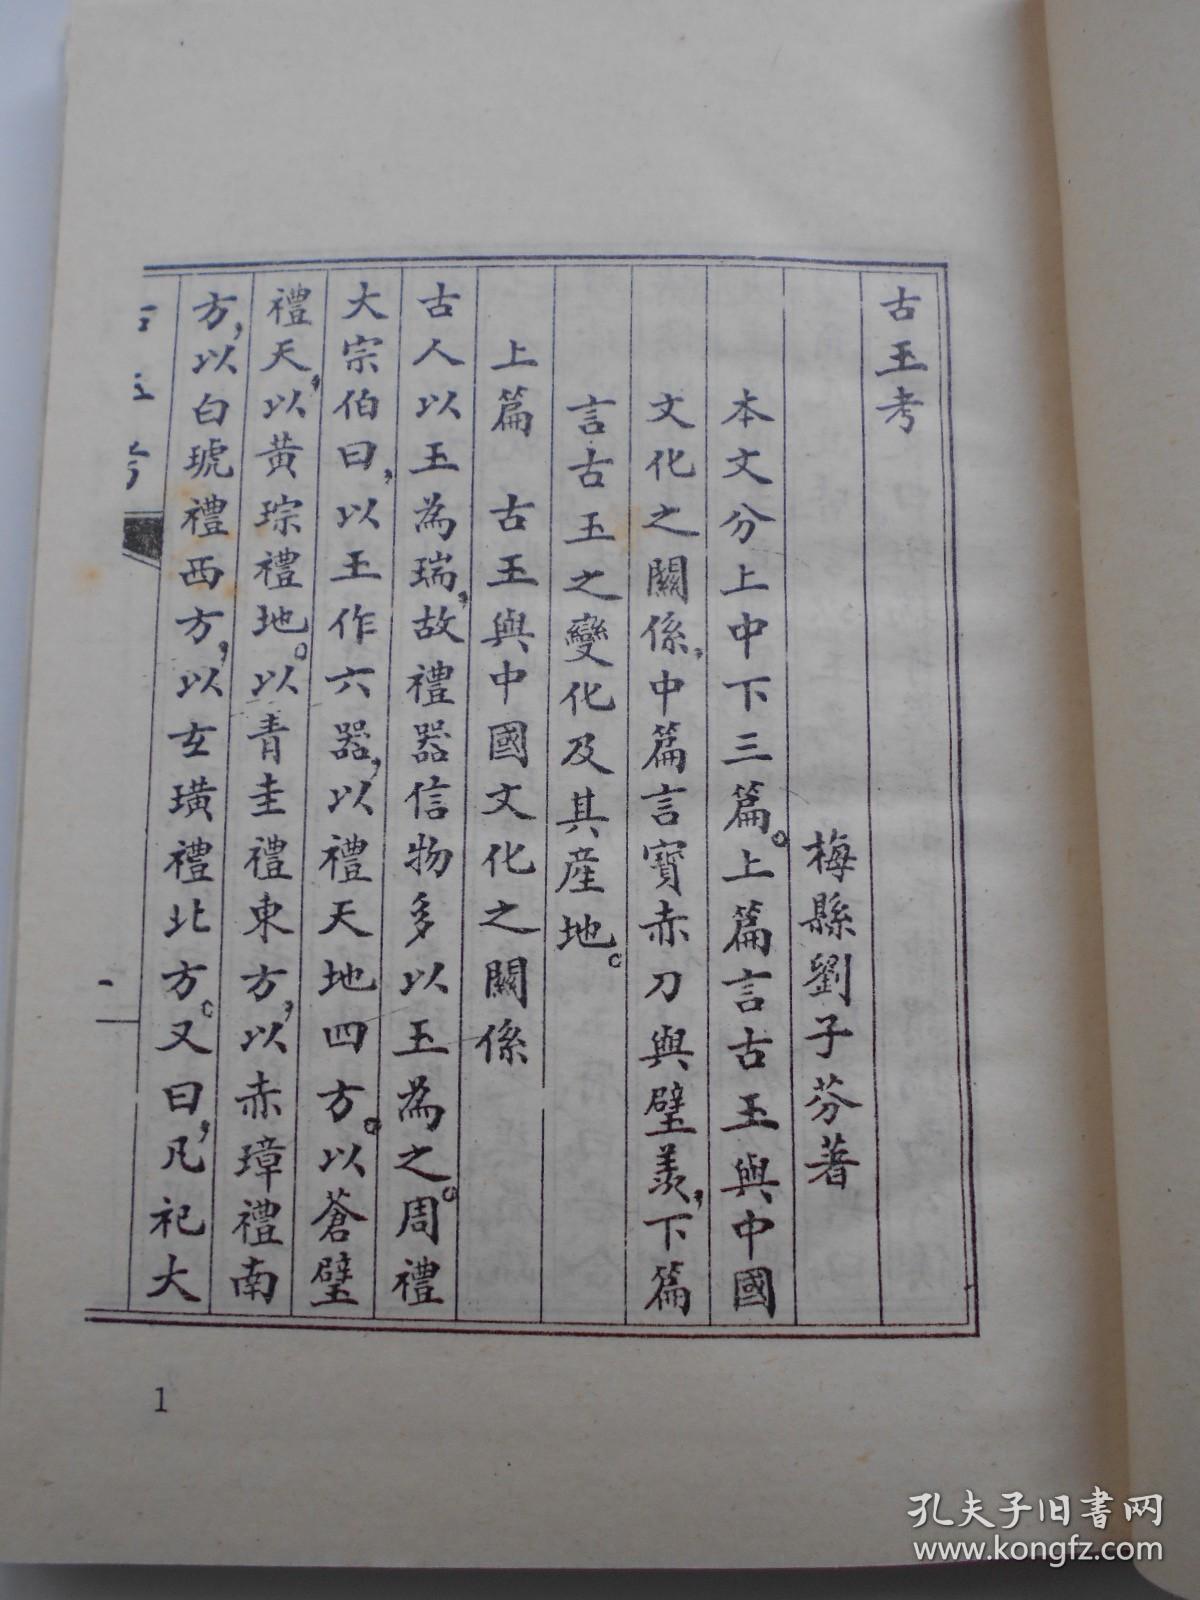 古玉考
梅縣劉子芬著
本文分上中下三篇。上篇言古玉與中國
文化之關係，中篇言寶赤刀與璧羨，下篇
言古玉之變化及其產地。
上篇　古玉與中國文化之關係
古人以玉為瑞，故禮器信物多以玉為之。周禮
大宗伯曰，以玉作六器，以禮天地四方。以蒼璧
禮天，以黃琮禮地。以青圭禮東方，以赤璋禮南
方，以白琥禮西方，以玄璜禮北方。又曰，凡祀大
一
1
孔夫子旧书网
www.kongfz.com